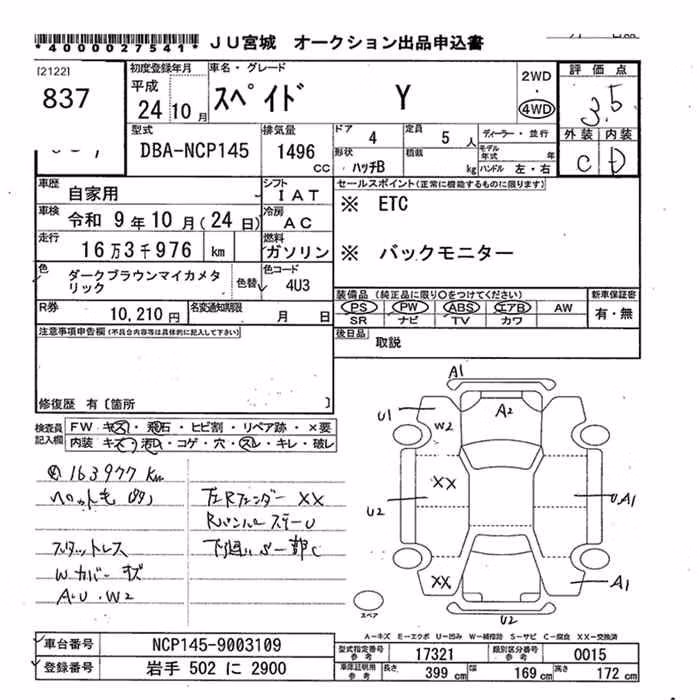 *40000027541* JU宮城 オークション出品申込書
[2122]
837
初度登録年月
平成
24 10 月
車名・グレード
スペイド Y
2WD
・
4WD
評価点
3.5
外装 内装
C D
型式
DBA-NCP145
排気量
1496
cc
ドア 4
定員 5 人
ディーラー・並行
形状 ハッチB
積載 kg
モデル年式 年
ハンドル 左・右
車歴 自家用
シフト IAT
車検 令和 9年10月(24日)
冷房 AC
走行 16万3千976 km
燃料 ガソリン
色 ダークブラウンマイカメタリック
色替
色コード 4U3
R券 10,210 円
名変通知期限 月 日
セールスポイント(正常に機能するものに限ります)
※ ETC
※ バックモニター
装備品(純正品に限り〇をつけてください)
PS PW ABS エアB AW
SR ナビ TV カワ
新車保証書
有・無
後日品 取説
注意事項申告欄(不具合内容等は具体的に記入して下さい)
修復歴 有〔箇所 〕
検査員記入欄
FW キズ・飛石・ヒビ割・リペア跡・×要
内装 キズ・汚れ・コゲ・穴・スレ・キレ・破レ
163977 km
スタットレス
Wカバー キズ
A・U・W2
左Rフェンダー XX
Rバンパーステー U
下廻り S 一部C
A1
U1
W2
A2
XX
U2
U,A1
XX
A1
U2
スペア
A-キズ E-エクボ U-凹み W-補修跡 S-サビ C-腐食 XX-交換済
車台番号 NCP145-9003109
登録番号 岩手 502 に 2900
型式指定番号 参考 17321
類別区分番号 参考 0015
車庫証明用 参考
長さ 399 cm
幅 169 cm
高さ 172 cm